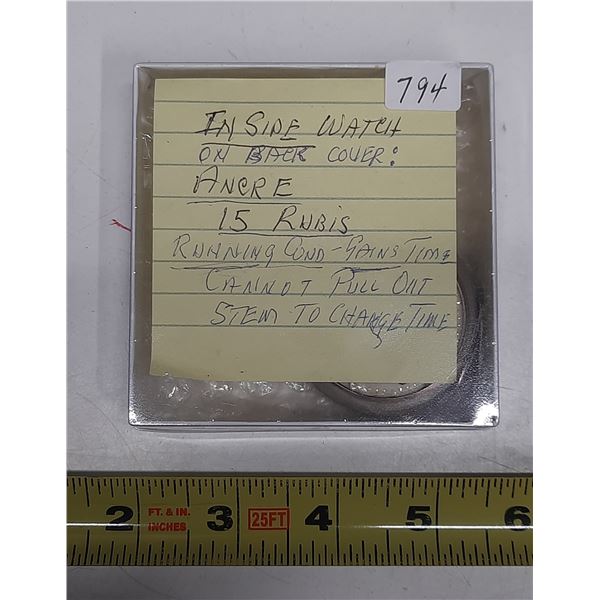 794
IN SIDE WATCH
ON BACK COVER:
ANCRE
15 RUBIS
RUNNING COND - GAINS TIME
CANNOT PULL OUT
STEM TO CHANGE TIME
2 FT. & IN. INCHES 3 25FT 4 5 6